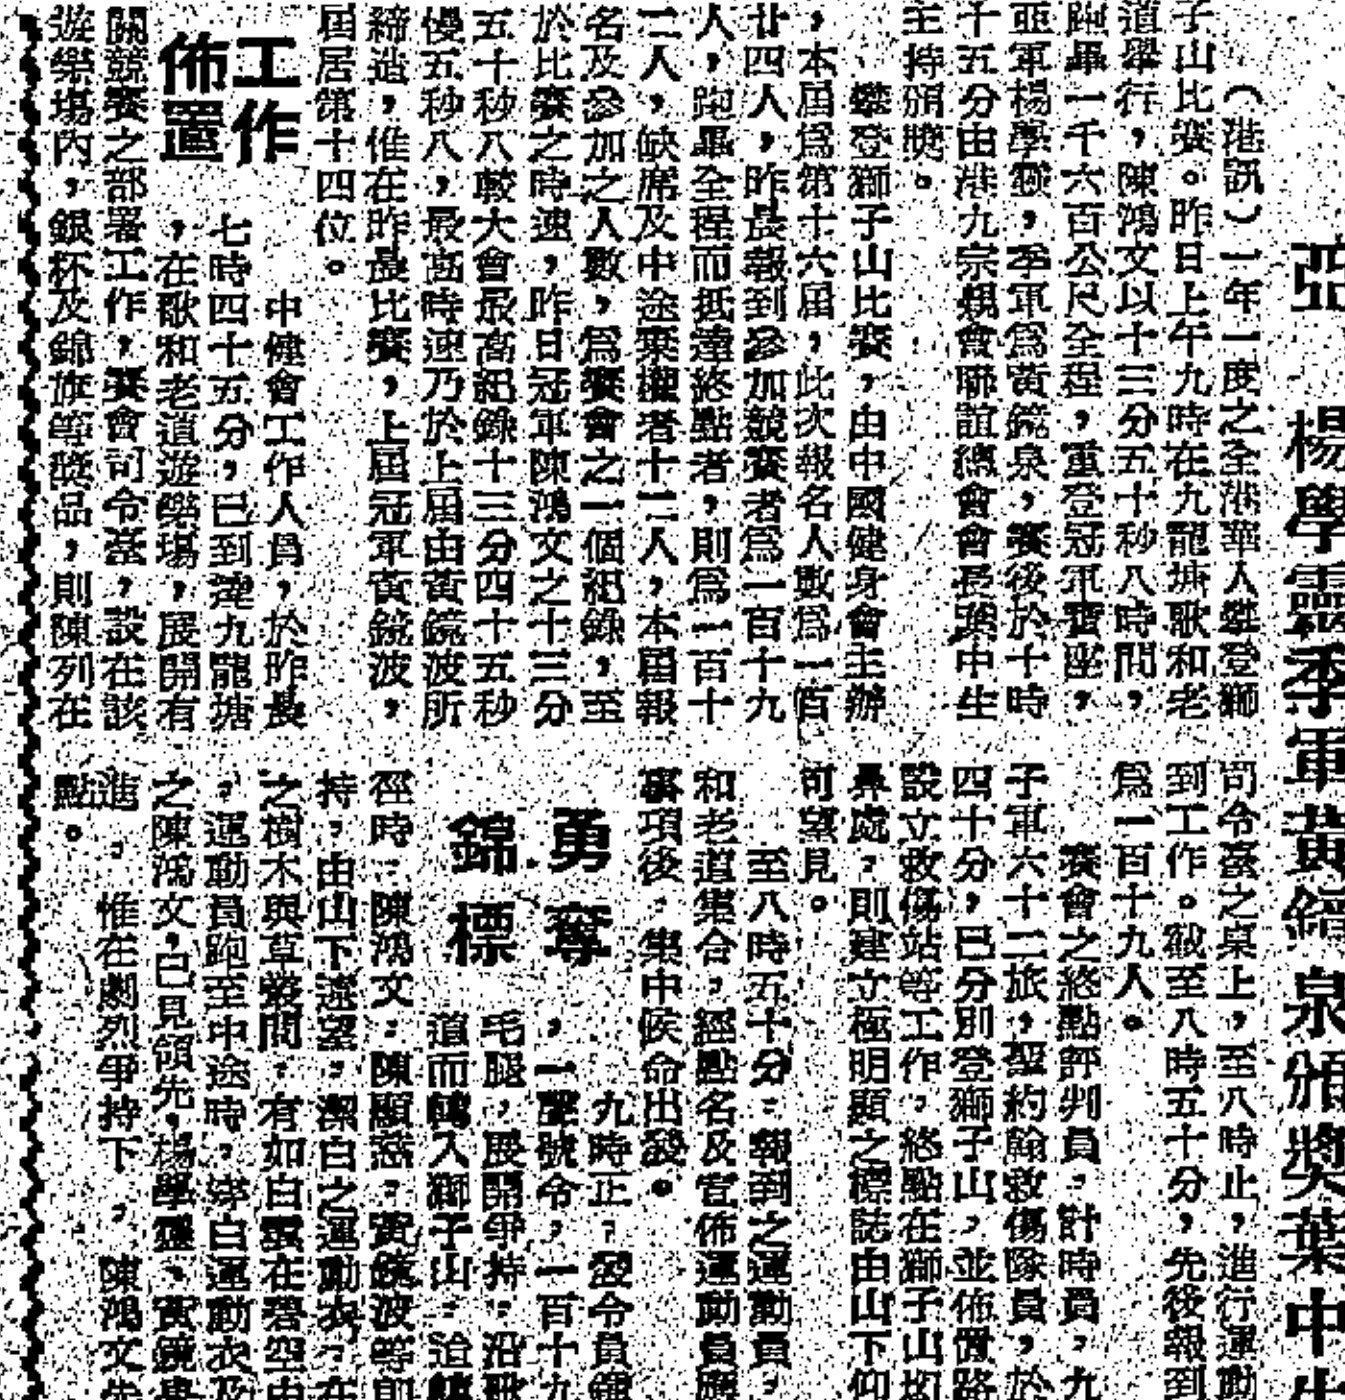 亞　楊學靈季軍黃鏡泉頒獎葉中
（港訊）一年一度之全港華人攀登獅
子山比賽。昨日上午九時在九龍塘歌和老
道舉行，陳鴻文以十三分五十秒八時間，
跑畢一千六百公尺全程，重登冠軍寶座，
亞軍楊學靈，季軍為黃鏡泉，賽後於十時
十五分由港九宗親會聯誼總會會長葉中生
主持頒獎。
攀登獅子山比賽，由中國健身會主辦
，本屆為第十六屆，此次報名人數為一百
廿四人，昨晨報到參加競賽者為一百十九
人，跑畢全程而抵達終點者，則為一百十
二人，缺席及中途棄權者十二人，本屆報
名及參加之人數，為賽會之一個紀錄，至
於比賽之時速，昨日冠軍陳鴻文之十三分
五十秒八較大會最高紀錄十三分四十五秒
慢五秒八，最高時速乃於上屆由黃鏡波所
締造，惟在昨晨比賽，上屆冠軍黃鏡波，
屆居第十四位。
工作
佈置
中健會工作人員，於昨晨
七時四十五分，已到達九龍塘
，在歌和老道遊樂場，展開有
關競賽之部署工作，賽會司令臺，設在該
遊樂場內，銀杯及錦旗等獎品，則陳列在
司令臺之桌上，至八時止，進行運動
到工作。截至八時五十分，先後報到
為一百十九人。
賽會之終點評判員，計時員，九
子軍六十二旅，聖約翰救傷隊員，於
四十分，已分別登獅子山，並佈置路
設立救傷站等工作，終點在獅子山
鼻處，則建立極明顯之標誌由山下仰
可望見。
至八時五十分，報到之運動員，
和老道集合，經點名及宣佈運動員應
事項後，集中候命出發。
勇奪
錦標
九時正，發令員鐘
，一聲號令，一百十九
毛腿，展開爭持，沿歌
道而轉入獅子山，沿
徑時，陳鴻文，陳顯慈，黃鏡波等即
持，由山下遠望，潔白之運動衣，在
之樹木與草叢間，有如白雲在碧空中
，運動員跑至中途時，穿白運動衣及
之陳鴻文，已見領先，楊學靈，黃鏡泉
進，惟在劇烈爭持下，陳鴻文先
點。